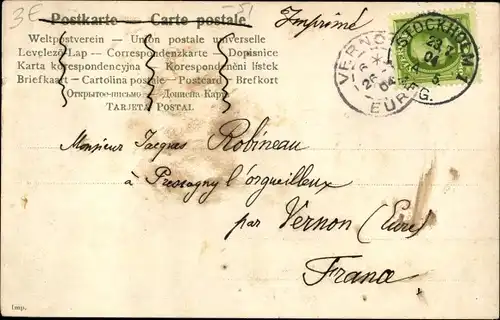 3E
-51
Imprimé
Postkarte — Carte postale
Weltpostverein — Union postale universelle
Levelező Lap — Correspondenzkarte — Dopisnice
Karta korespondencyjna — Korespondenční lístek
Briefkaart — Cartolina postale — Postcard — Brefkort
Открытое письмо — Дописна Карта
TARJETA POSTAL
VERNON
26
04
EURE
STOCKHOLM
23.7
04
Monsieur Jacques Robineau
à Pressagny l'orgueilleux
par Vernon (Eure)
France
Imp.